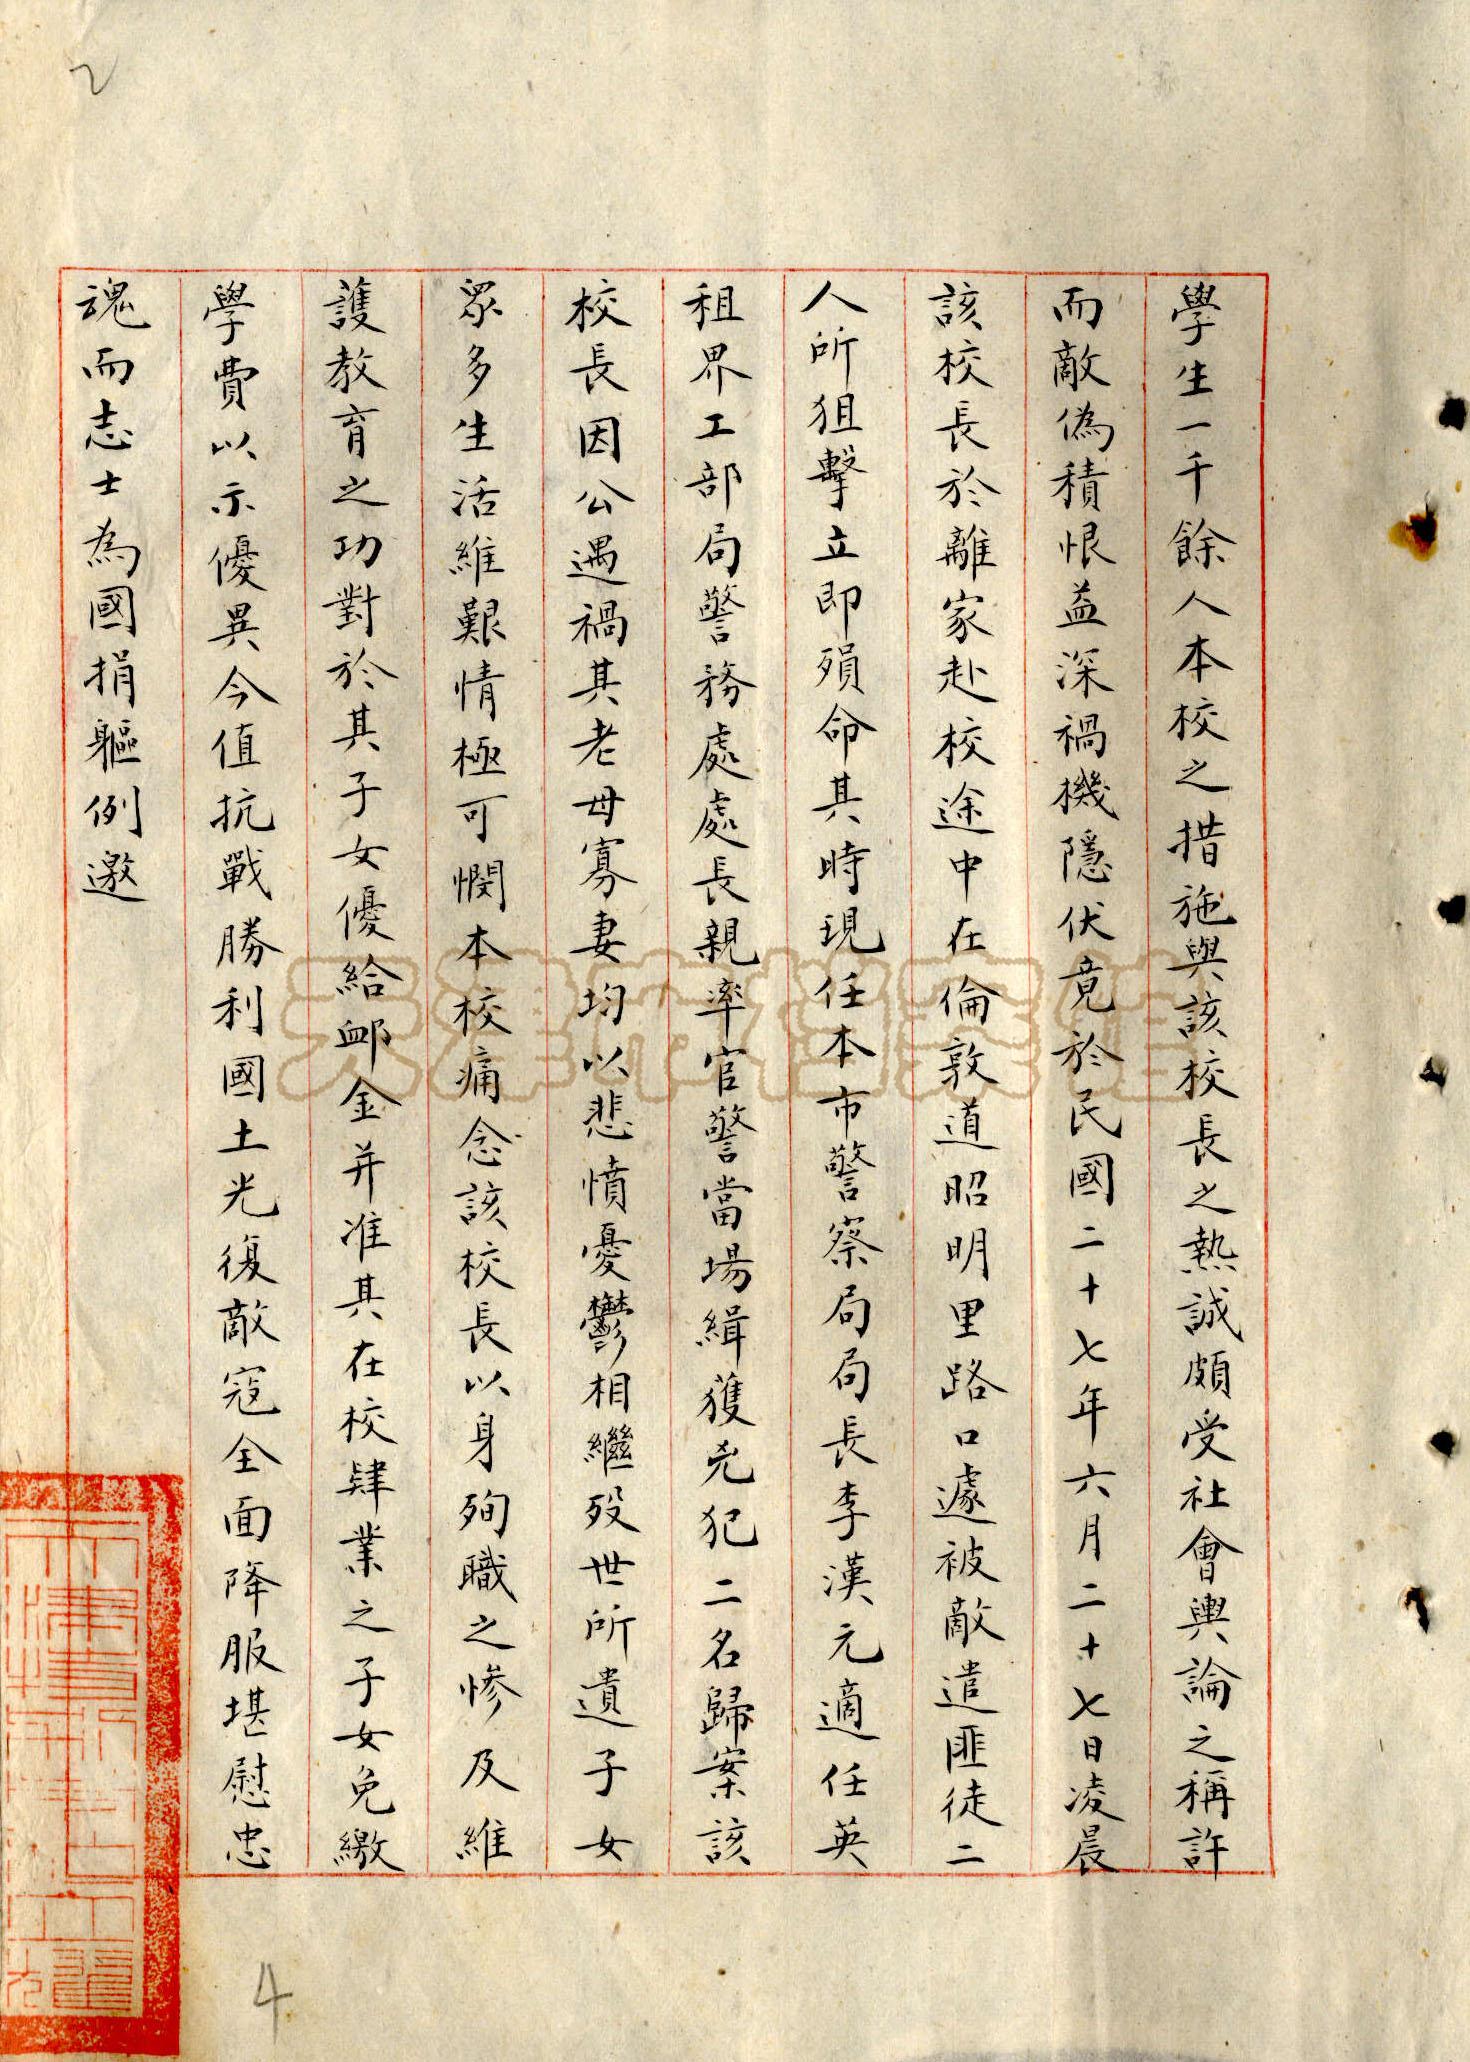 2
學生一千餘人本校之措施與該校長之熱誠頗受社會輿論之稱許
而敵偽積恨益深禍機隱伏竟於民國二十七年六月二十七日凌晨
該校長於離家赴校途中在倫敦道昭明里路口遽被敵遣匪徒二
人所狙擊立即殞命其時現任本市警察局局長李漢元適任英
租界工部局警務處處長親率官警當場緝獲兇犯二名歸案該
校長因公遇禍其老母寡妻均以悲憤憂鬱相繼歿世所遺子女
眾多生活維艱情極可憫本校痛念該校長以身殉職之慘及維
護教育之功對於其子女優給卹金并准其在校肄業之子女免繳
學費以示優異今值抗戰勝利國土光復敵寇全面降服堪慰忠
魂而志士為國捐軀例邀
4
天津市檔案館